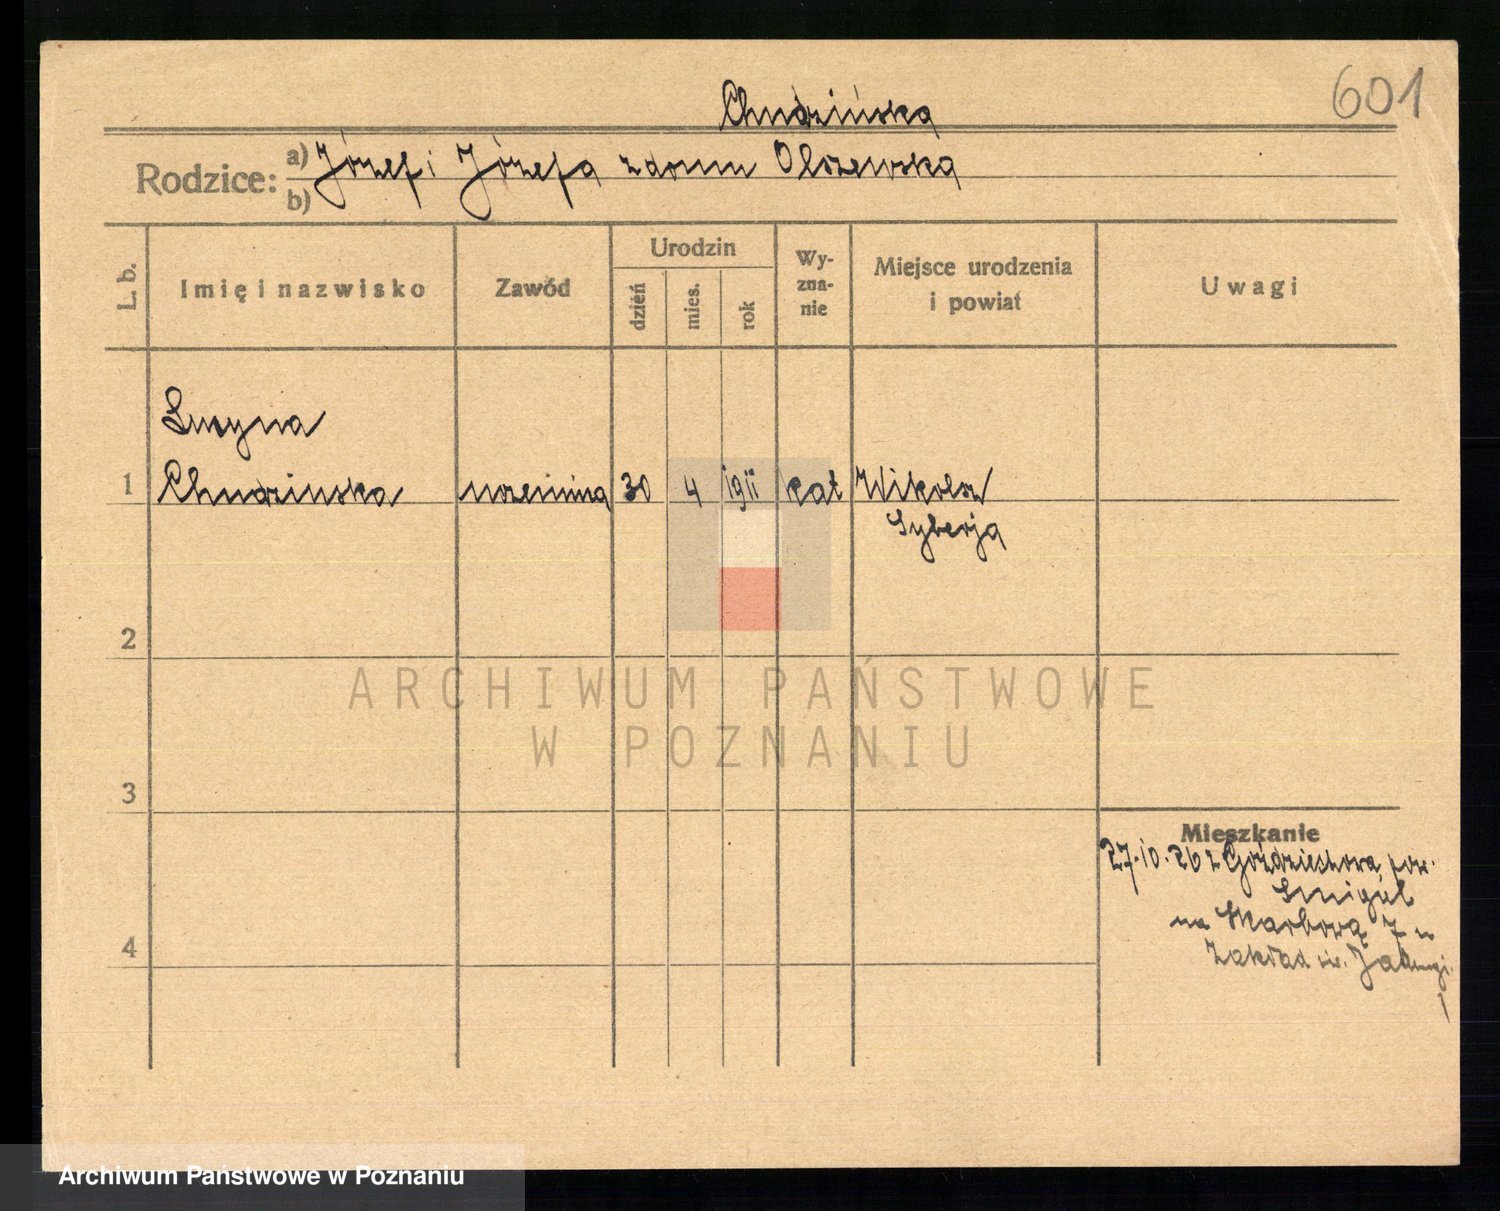 601
Chudzińska
Rodzice: a) Józef i Józefa z domu Olszewska
b)
L. b. Imię i nazwisko Zawód Urodzin dzień mies. rok Wyznanie Miejsce urodzenia i powiat Uwagi
Lucyna
1 Chudzinska uczennica 30 4 1911 kat Nikolsk
Syberja
2
ARCHIWUM PAŃSTWOWE
W POZNANIU
3
Mieszkanie
27.10.26 z Goździechowa, pow.
Smigiel
na Skarbową 7 w
Zakład św. Jadwigi.
4
Archiwum Państwowe w Poznaniu